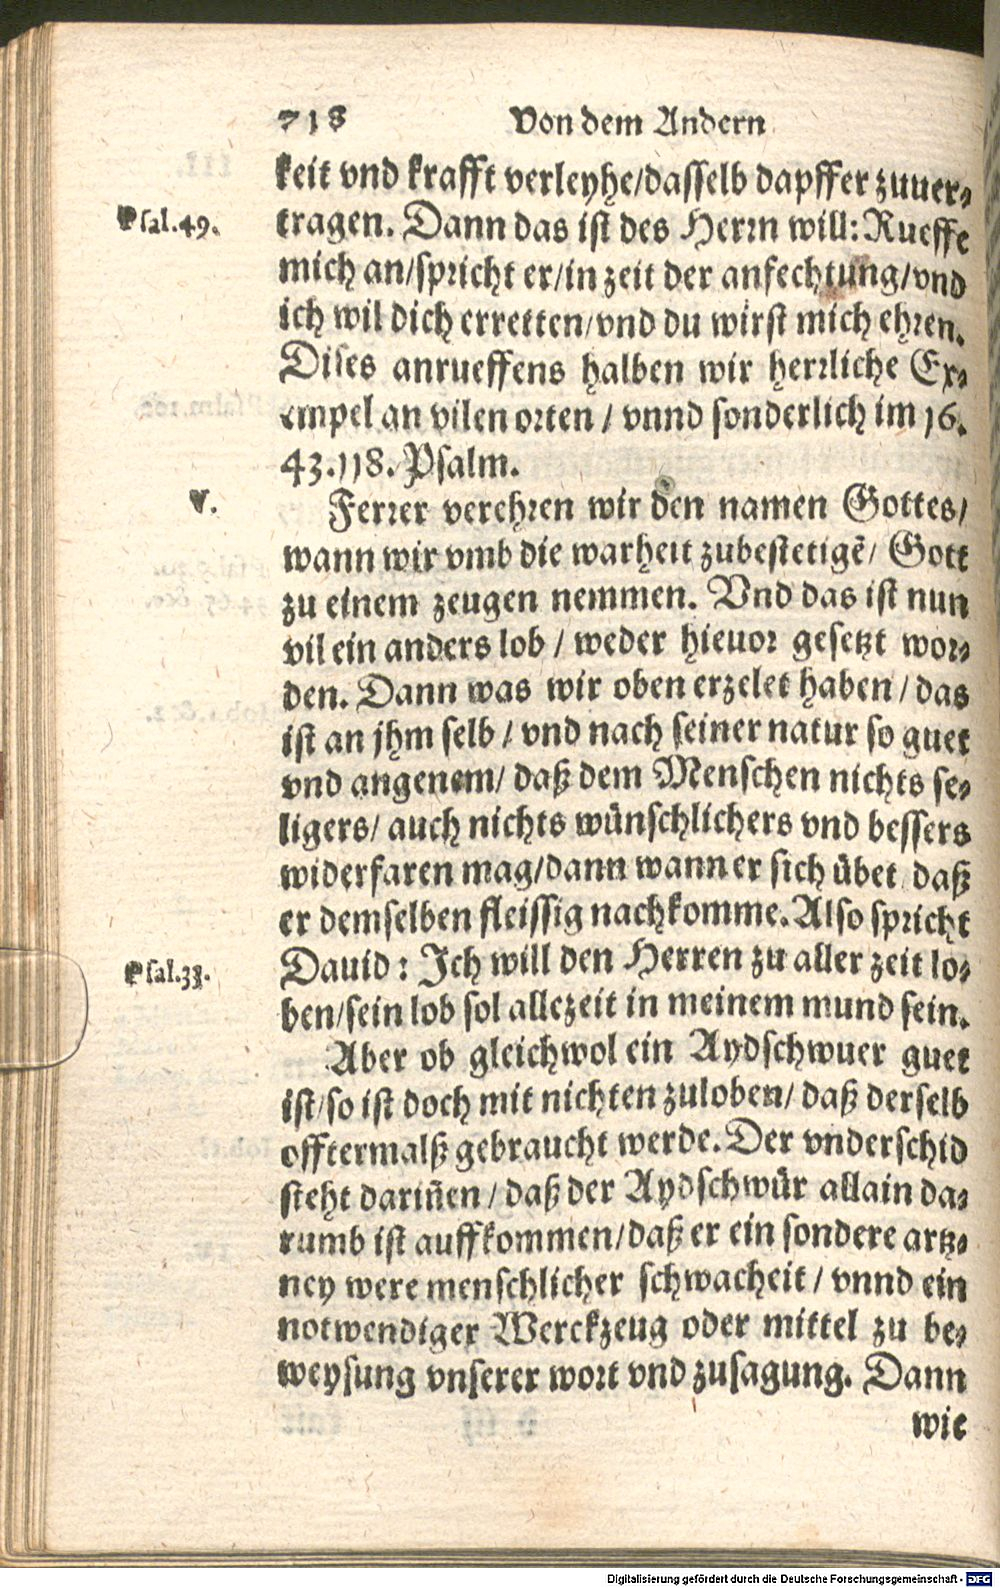 718 Von dem Andern
keit vnd krafft verleyhe/dasselb dapffer zuuer-
Psal.49. tragen. Dann das ist des Herrn will: Rueffe
mich an/spricht er/in zeit der anfechtung/vnd
ich wil dich erretten/vnd du wirst mich ehren.
Dises anrueffens halben wir herrliche Ex-
empel an vilen orten / vnnd sonderlich im 16.
43.118. Psalm.
V. Ferrer verehren wir den namen Gottes/
wann wir vmb die warheit zubestetigẽ/ Gott
zu einem zeugen nemmen. Vnd das ist nun
vil ein anders lob / weder hieuor gesetzt wor-
den. Dann was wir oben erzelet haben / das
ist an jhm selb / vnd nach seiner natur so guet
vnd angenem/ daß dem Menschen nichts se-
ligers/ auch nichts wünschlichers vnd bessers
widerfaren mag/dann wann er sich übet daß
er demselben fleissig nachkomme. Also spricht
Psal.33. Dauid : Ich will den Herren zu aller zeit lo-
ben/sein lob sol allezeit in meinem mund sein.
Aber ob gleichwol ein Aydschwuer guet
ist/so ist doch mit nichten zuloben/ daß derselb
offtermalß gebraucht werde. Der vnderschid
steht dariñen / daß der Aydschwür allain da-
rumb ist auffkommen/daß er ein sondere artz-
ney were menschlicher schwacheit / vnnd ein
notwendiger Werckzeug oder mittel zu be-
weysung vnserer wort vnd zusagung. Dann
wie
Digitalisierung gefördert durch die Deutsche Forschungsgemeinschaft - DFG